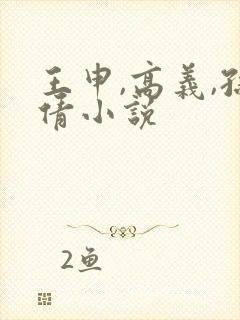 王申,高義,孫
倩小説
2鱼